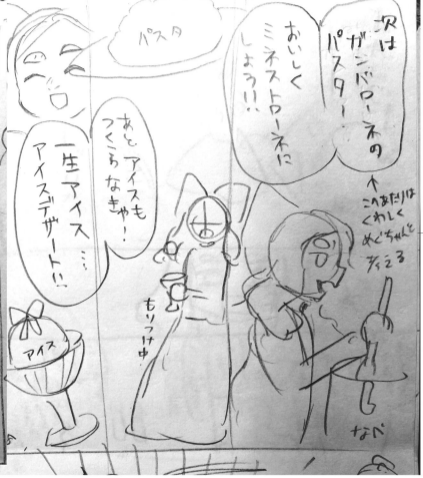 次は
ガンバローネの
パスター
おいしく
ミネストローネに
しよう!!
↑
このあたりは
くわしく
めぐちゃんと
なべ
もりつけ中
パスタ
あと アイスも
つくらなきゃ!
一生アイス…
アイスデザート!!
アイス